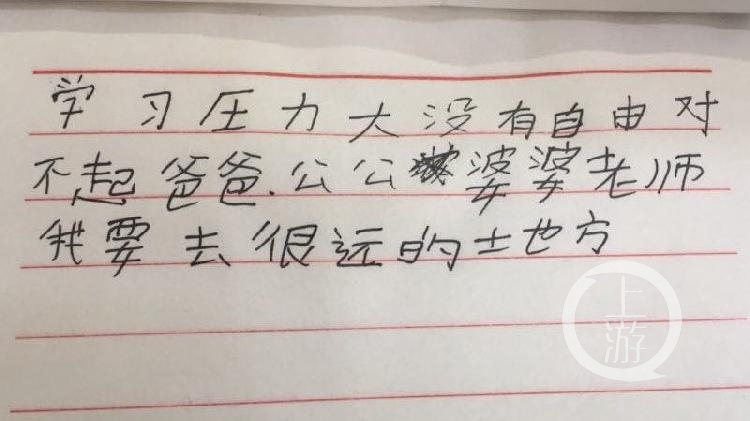 学习压力大没有自由对
不起爸爸.公公婆婆老师
我要去很远的土也方
上游